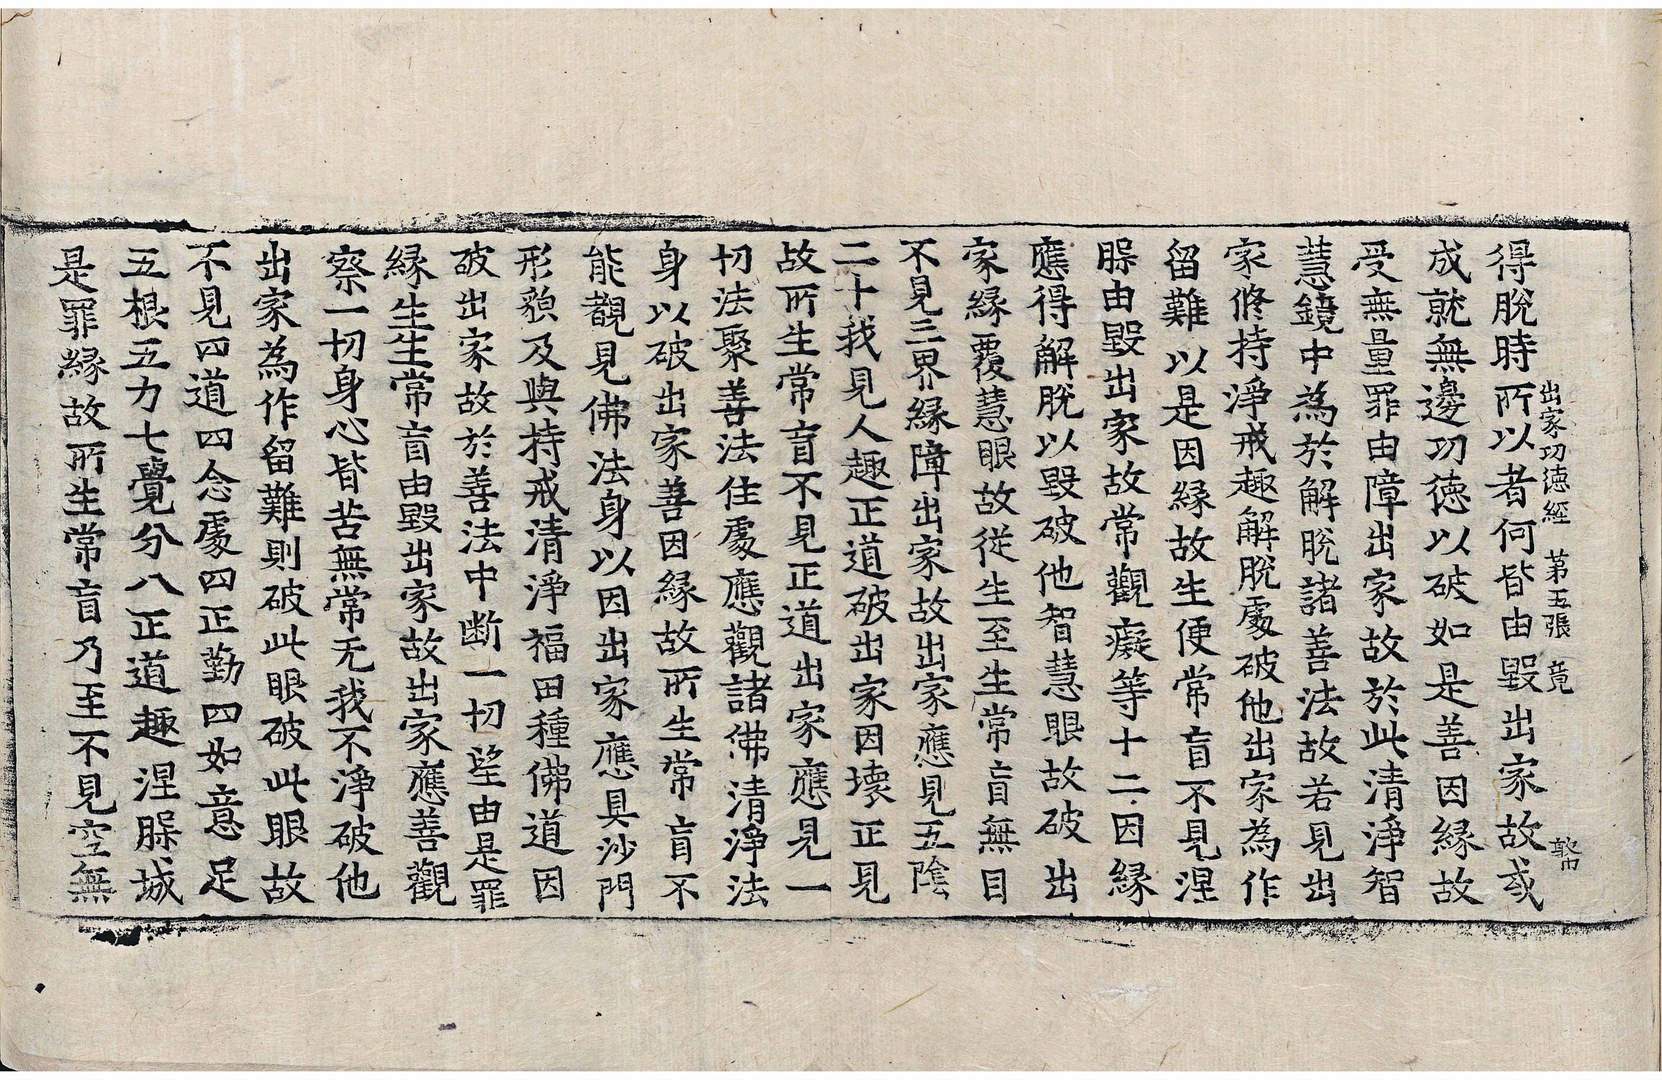 出家功德經 第五張 竟
得脫時所以者何皆由毀出家故或
成就無邊功德以破如是善因緣故
受無量罪由障出家故於此清淨智
慧鏡中為於解脫諸善法故若見出
家修持淨戒趣解脫處破他出家為作
留難以是因緣故生便常盲不見涅
髁由毀出家故常觀癡等十二因緣
應得解脫以毀破他智慧眼故破出
家緣覆慧眼故從生至生常盲無目
不見三界緣障出家故出家應見五陰
二十我見人趣正道破出家因壞正見
故所生常盲不見正道出家應見一
切法聚善法住處應觀諸佛清淨法
身以破出家善因緣故所生常盲不
能覩見佛法身以因出家應具沙門
形貌及與持戒清淨福田種佛道因
破出家故於善法中斷一切望由是罪
緣生生常盲由毀出家故出家應善觀
察一切身心皆苦無常无我不淨破他
出家為作留難則破此眼破此眼故
不見四道四念處四正勤四如意足
五根五力七覺分八正道趣涅髁城
是罪緣故所生常盲乃至不見空無